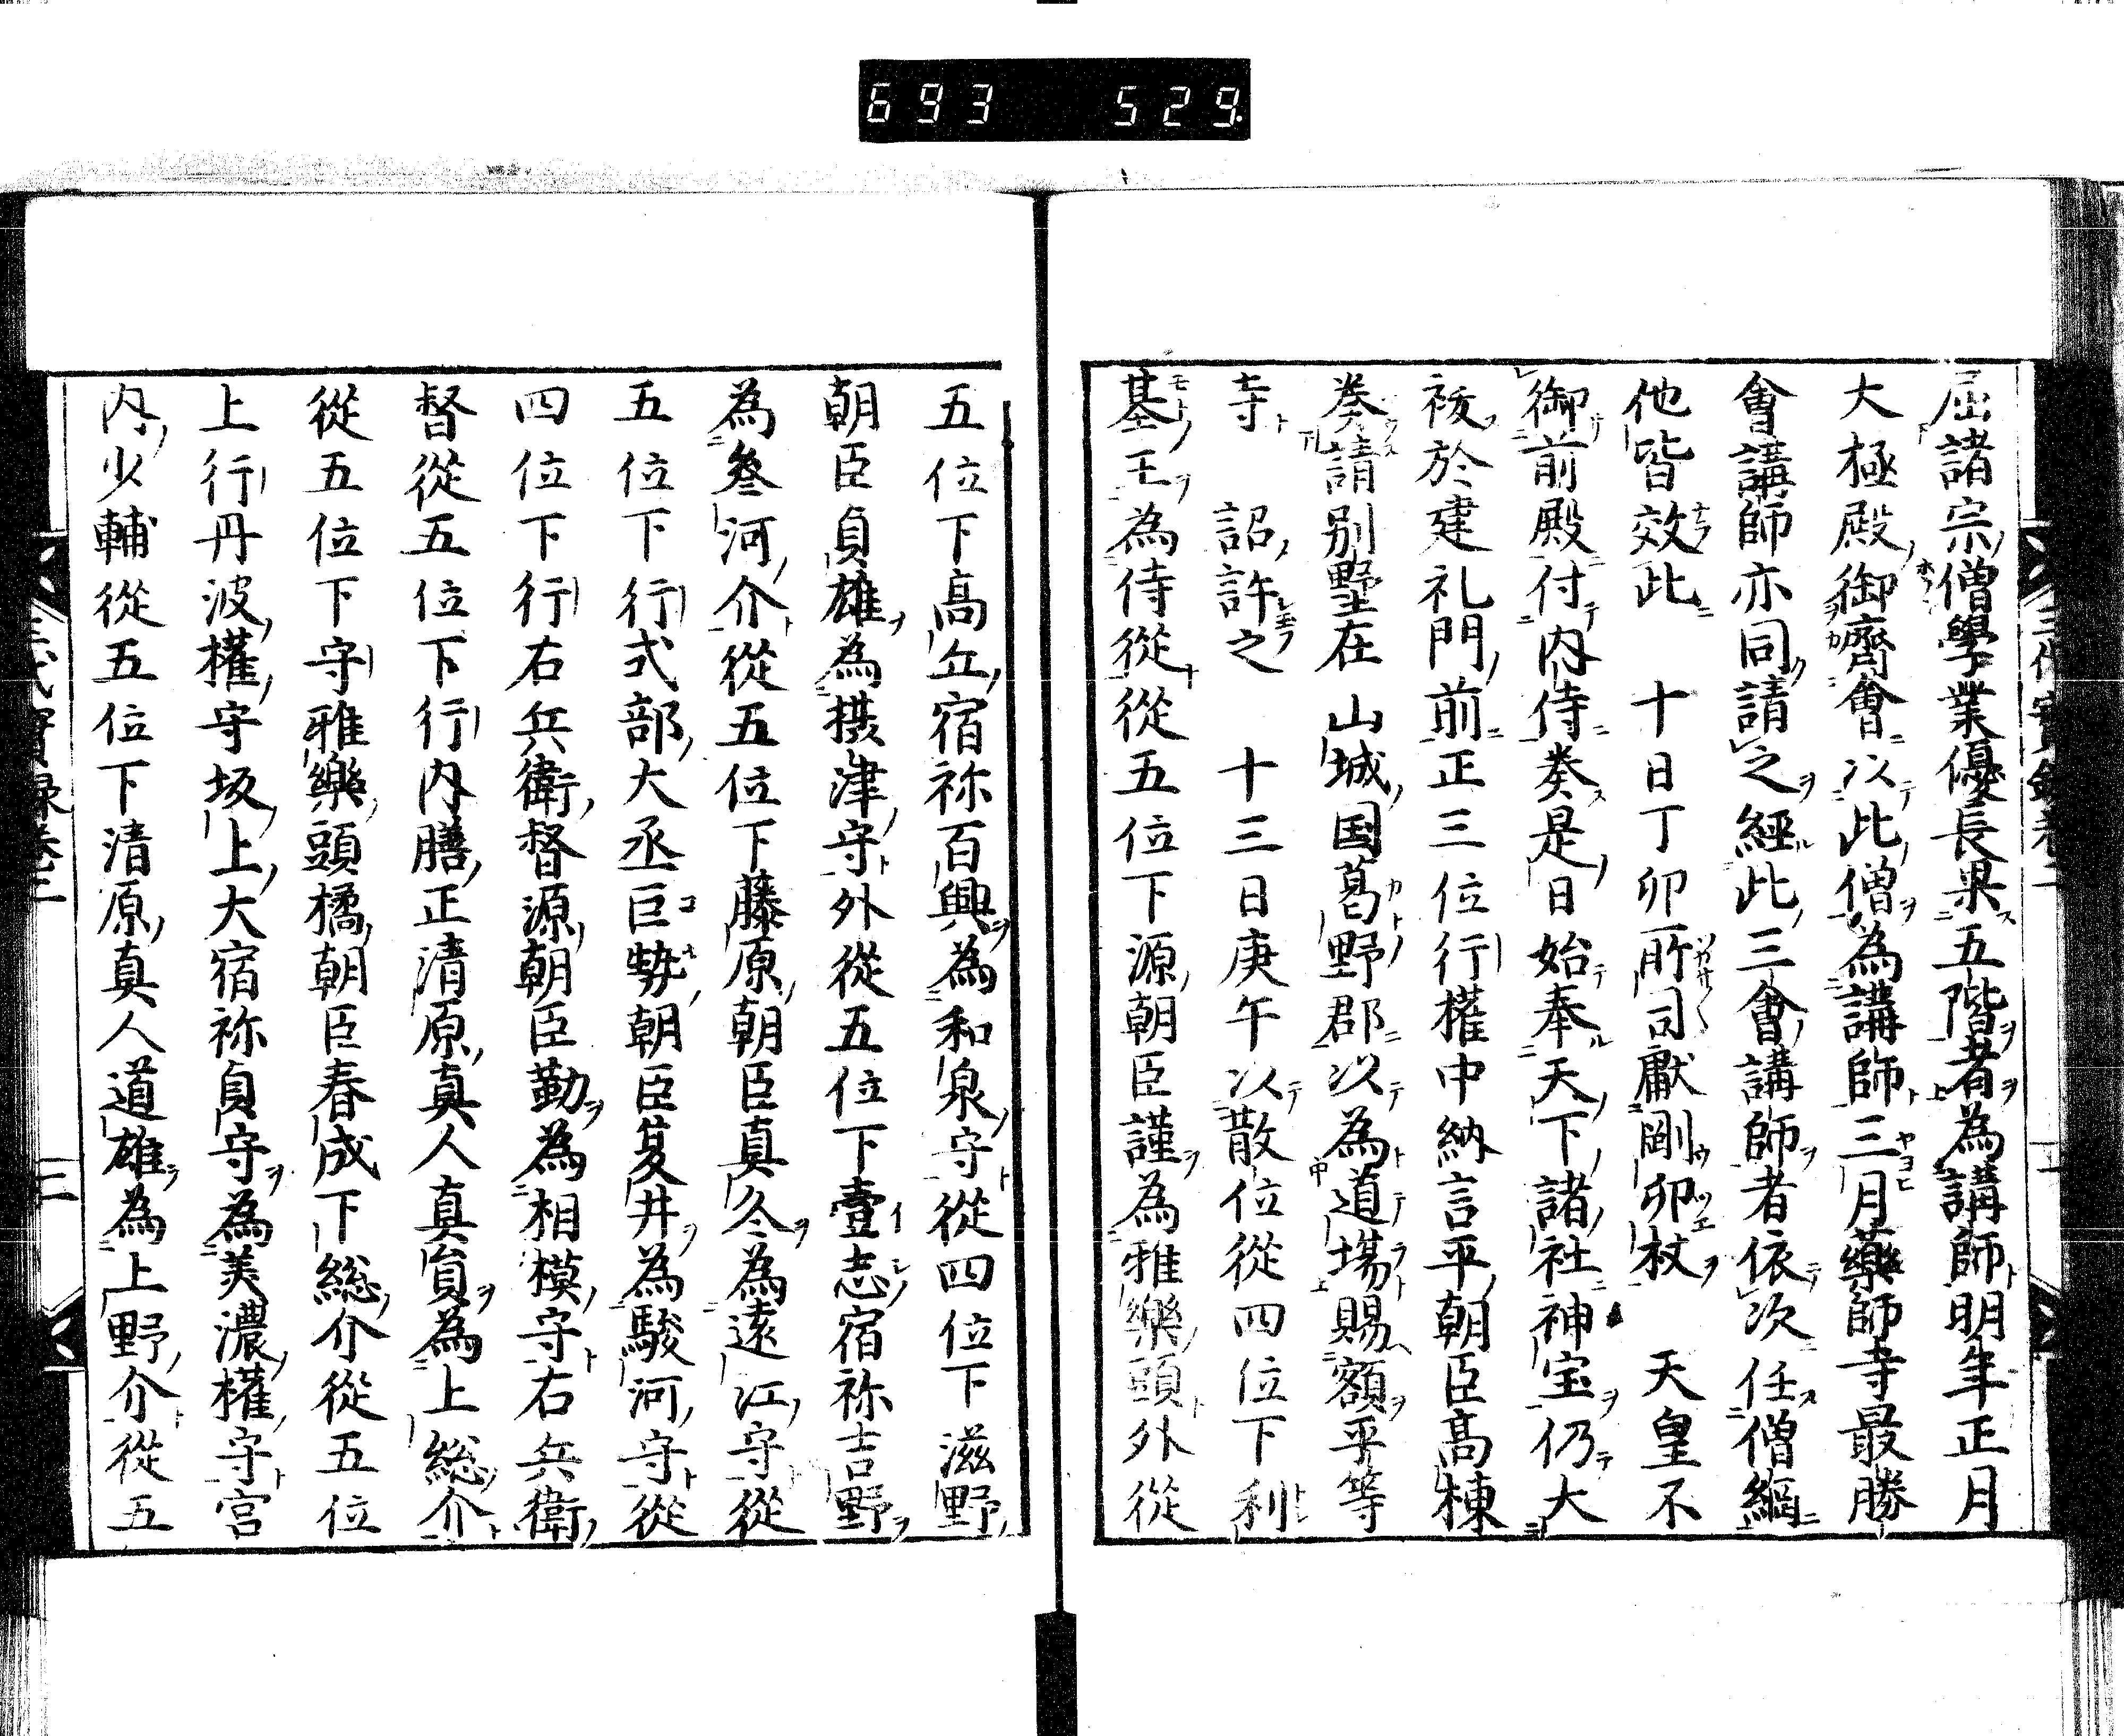 693 529
屈諸宗僧學業優長果五階者為講師明年正月
大極殿御齊會以此僧為講師三月藥師寺最勝
會講師亦同請之經此三會講師者依次任僧綱
他皆效此 十日丁卯所司獻剛卯杖 天皇不
御前殿付内侍奏是日始奉天下諸社神宝仍大
祓於建礼門前正三位行權中納言平朝臣高棟
奏請別墅在山城国葛野郡以為道場賜額平等
寺 詔許之 十三日庚午以散位從四位下利
基王為侍從從五位下源朝臣謹為雅樂頭外從
五位下高丘宿祢百興為和泉守從四位下滋野
朝臣貞雄為摂津守外從五位下壹志宿祢吉野
為叄河介從五位下藤原朝臣真冬為遠江守從
五位下行式部大丞巨勢朝臣夏井為駿河守從
四位下行右兵衛督源朝臣勤為相模守右兵衛
督從五位下行内膳正清原真人真貟為上総介
從五位下守雅樂頭橘朝臣春成下総介從五位
上行丹波權守坂上大宿祢貞守為美濃權守宮
内少輔從五位下清原真人道雄為上野介從五